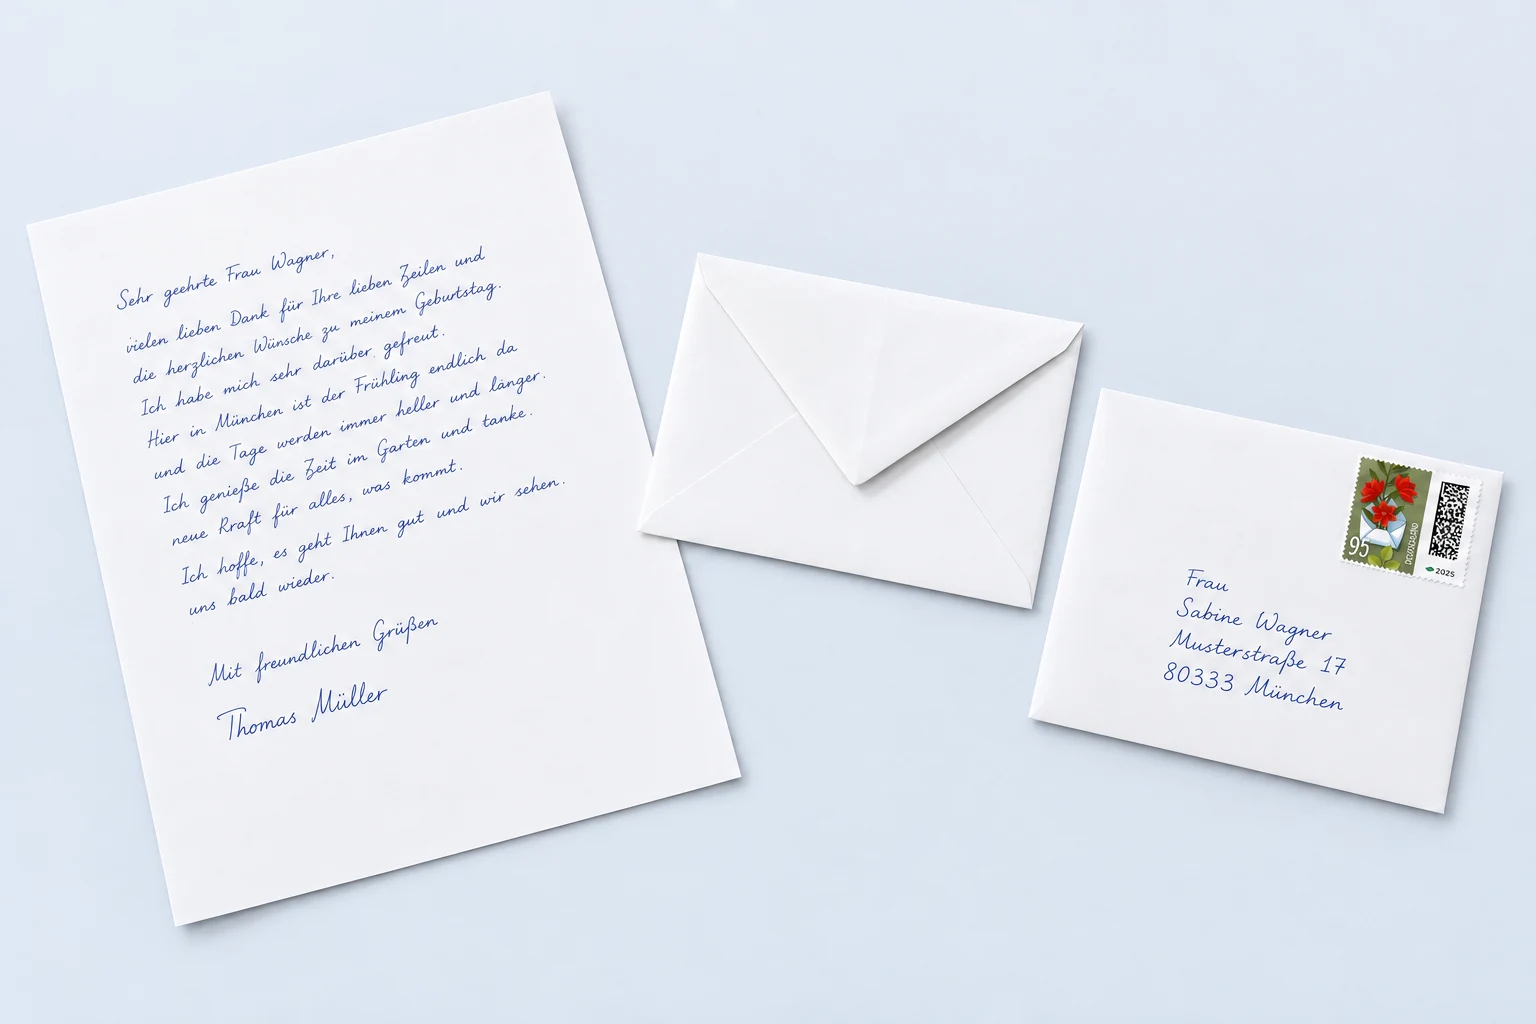 Sehr geehrte Frau Wagner,
vielen lieben Dank für Ihre lieben Zeilen und
die herzlichen Wünsche zu meinem Geburtstag.
Ich habe mich sehr darüber gefreut.
Hier in München ist der Frühling endlich da
und die Tage werden immer heller und länger.
Ich genieße die Zeit im Garten und tanke.
neue Kraft für alles, was kommt.
Ich hoffe, es geht Ihnen gut und wir sehen.
uns bald wieder.
Mit freundlichen Grüßen
Thomas Müller
95
DEUTSCHLAND
2025
Frau
Sabine Wagner
Musterstraße 17
80333 München